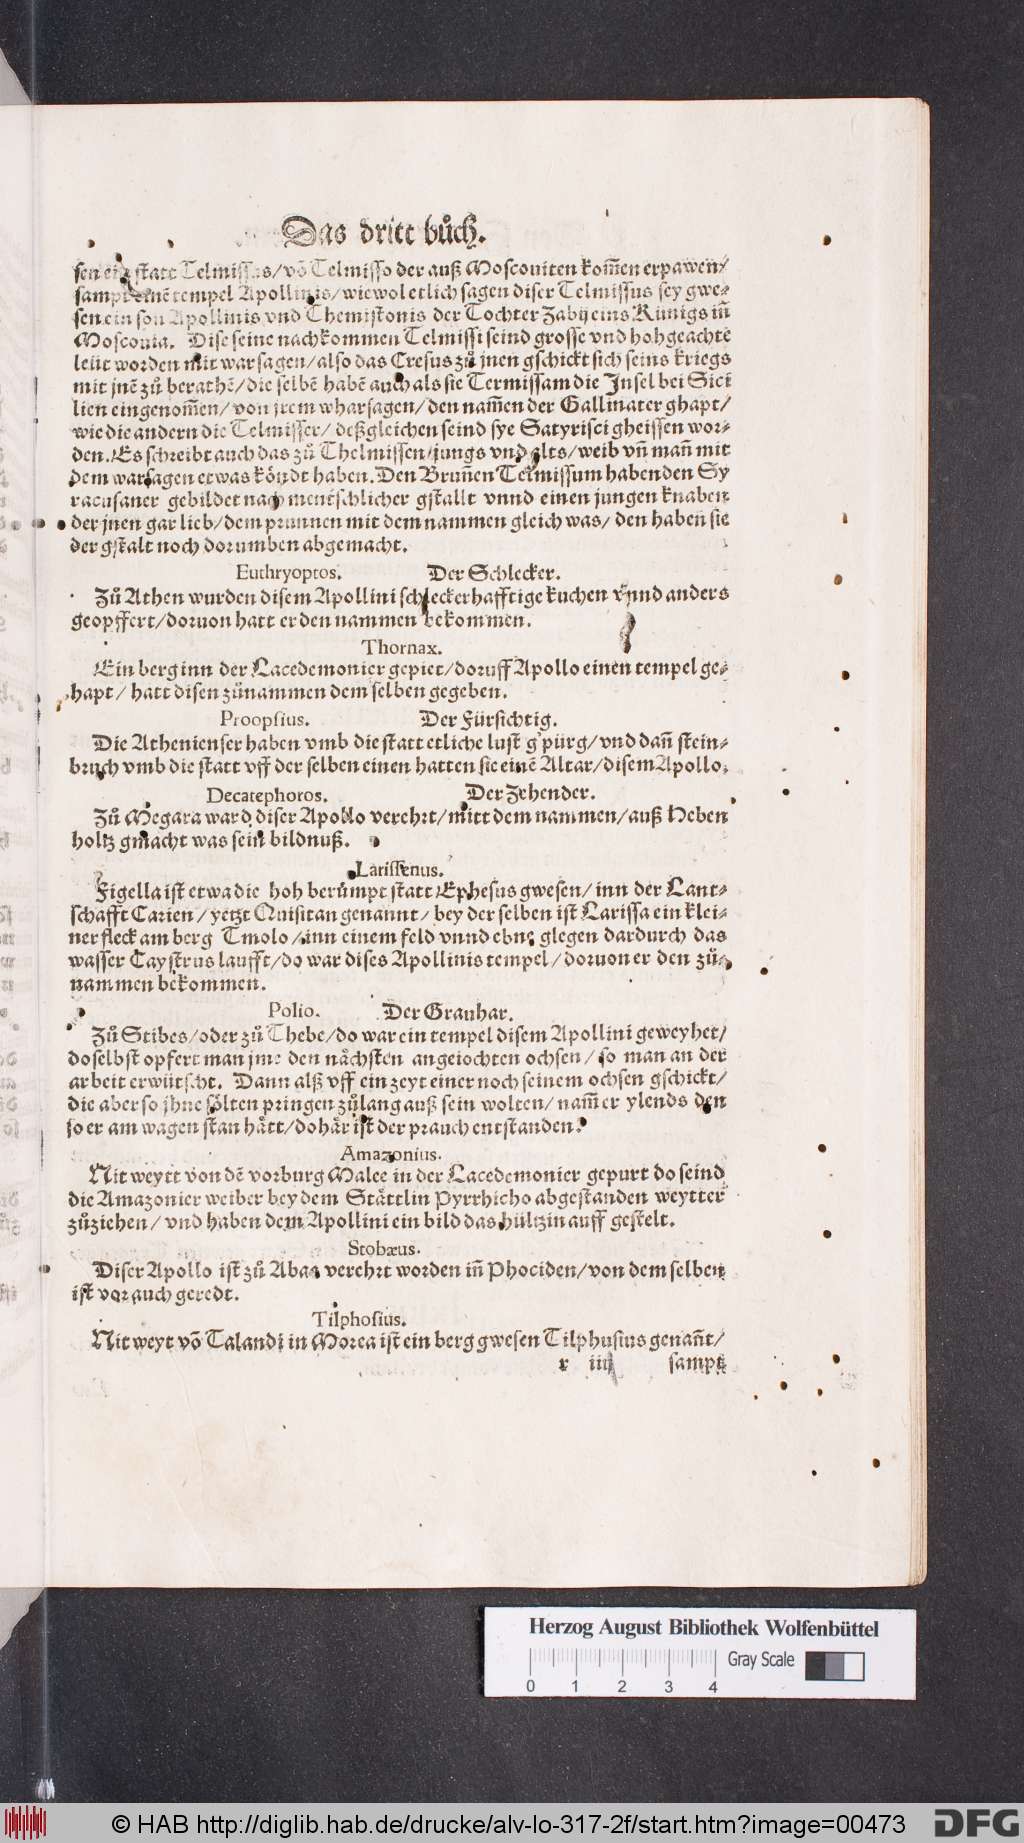 Das dritt bůch.
sen ein statt Telmissus/võ Telmisso der auß Moscouiten kom̃en erpawen/
sampt einẽ tempel Apollinis/wiewol etlich sagen diser Telmissus sey gwe-
sen ein son Apollinis vnd Themistonis der Tochter Zabij eins Künigs iñ
Moscouia. Dise seine nachkommen Telmissi seind grosse vnd hohgeachte
leüt worden mit warsagen/also das Cresus zů jnen gschickt sich seins kriegs
mit jnẽ zů berathẽ/die selbẽ habẽ auch als sie Termissam die Insel bei Sici
lien eingenom̃en/von jrem wharsagen/den nam̃en der Gallinater ghapt/
wie die andern die Telmisser/ deßgleichen seind sye Satyrisci gheissen wor-
den. Es schreibt auch das zů Thelmissen/jungs vnd alts/weib vñ mañ mit
dem warsagen etwas köndt haben. Den Bruñen Telmissum haben den Sy
racusaner gebildet nach mentschlicher gstallt vnnd einen jungen knaben
der jnen gar lieb/dem prunnen mit dem nammen gleich was/ den haben sie
der gstalt noch dorumben abgemacht.
Euthryoptos. Der Schlecker.
Zů Athen wurden disem Apollini schleckerhafftige kuchen vnnd anders
geopffert/doruon hatt er den nammen bekommen.
Thornax.
Ein berg inn der Lacedemonier gepiet/doruff Apollo einen tempel ge-
hapt/ hatt disen zůnammen dem selben gegeben.
Proopsius. Der Fürsichtig.
Die Athenienser haben vmb die statt etliche lust g'pürg/vnd dañ stein-
bruch vmb die statt vff der selben einen hatten sie einẽ Altar/disem Apollo.
Decatephoros. Der Zehender.
Zů Megara ward diser Apollo verehrt/mitt dem nammen/auß Heben
holtz gmacht was sein bildnuß.
Larissenus.
Figella ist etwa die hoh berümpt statt Ephesus gwesen/inn der Lant-
schafft Carien/yetzt Quisitan genannt/bey der selben ist Larissa ein klei-
ner fleck am berg Tmolo/inn einem feld vnnd ebne glegen dardurch das
wasser Caystrus laufft/do war dises Apollinis tempel/doruon er den zů-
nammen bekommen.
Polio. Der Grauhar.
Zů Stibes/oder zů Thebe/do war ein tempel disem Apollini geweyhet/
doselbst opfert man jme den nächsten angeiochten ochsen/ so man an der
arbeit erwütscht. Dann alß vff ein zeyt einer noch seinem ochsen gschickt/
die aber so jhne sölten pringen zů lang auß sein wolten/ nam̃ er ylends den
so er am wagen stan hätt/dohär ist der prauch entstanden.
Amazonius.
Nit weytt von dẽ vorburg Malee in der Lacedemonier gepurt do seind
die Amazonier weiber bey dem Stättlin Pyrrhicho abgestanden weytter
zůziehen/ vnd haben dem Apollini ein bild das hültzin auff gestelt.
Stobæus.
Diser Apollo ist zů Abas verehrt worden iñ Phociden/von dem selben
ist vor auch geredt.
Tilphosius.
Nit weyt võ Talandi in Morea ist ein berg gwesen Tilphusius genañt/
r iiij sampt
Herzog August Bibliothek Wolfenbüttel
Gray Scale
0 1 2 3 4
© HAB http://diglib.hab.de/drucke/alv-lo-317-2f/start.htm?image=00473
DFG